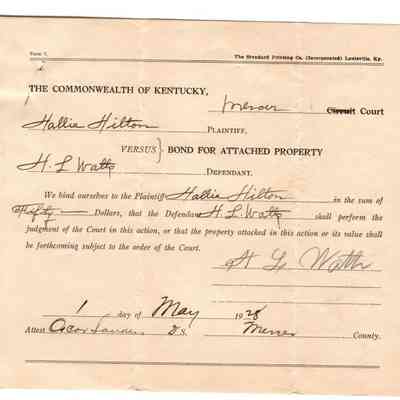 Form 7. The Standard Printing Co. (Incorporated) Louisville, Ky.
THE COMMONWEALTH OF KENTUCKY,
Mercer Circuit Court
Hallie Hilton PLAINTIFF,
VERSUS } BOND FOR ATTACHED PROPERTY
H. L. Watts DEFENDANT.
We bind ourselves to the Plaintiff Hallie Hilton in the sum of
Fifty Dollars, that the Defendant H. L. Watts shall perform the
judgment of the Court in this action, or that the property attached in this action or its value shall
be forthcoming subject to the order of the Court.
H L Watts
1 day of May 1928
Attest Oscar Sanders D.S. Mercer County.